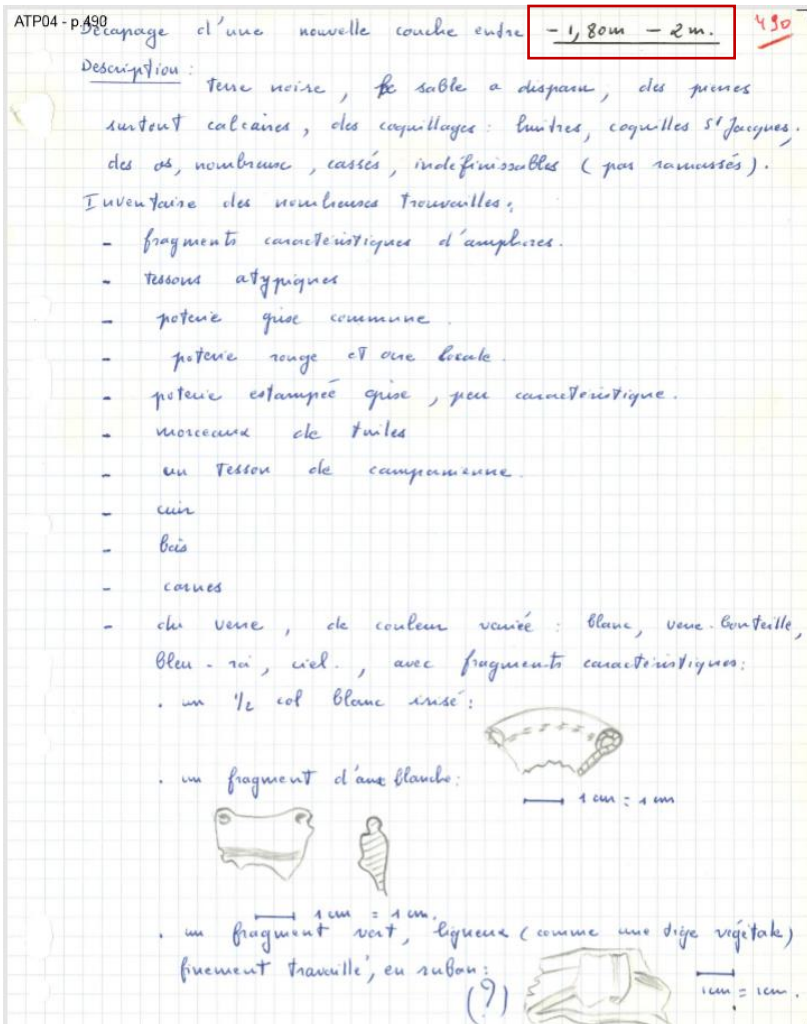 ATP04 - p.490
Décapage d'une nouvelle couche entre - 1,80m - 2m. 490
Description :
Terre noire, le sable a disparu, des pierres
surtout calcaires, des coquillages : huitres, coquilles St Jacques,
des os, nombreux, cassés, indéfinissables (pas ramassés).
Inventaire des nombreuses trouvailles :
- fragments caractéristiques d'amphores.
- tessons atypiques
- poterie grise commune.
- poterie rouge et ocre locale.
- poterie estampée grise, peu caractéristique.
- morceaux de tuiles
- un tesson de campanienne.
- cuir
- bois
- cornes
- du verre, de couleur variée : blanc, verre-bouteille,
bleu-roi, ciel., avec fragments caractéristiques :
. un 1/2 col blanc irisé :
. un fragment d'anse blanche :
1 cm = 1 cm
1 cm = 1 cm.
. un fragment vert, ligneux (comme une tige végétale)
finement travaillé, en ruban :
(?)
1cm = 1cm.